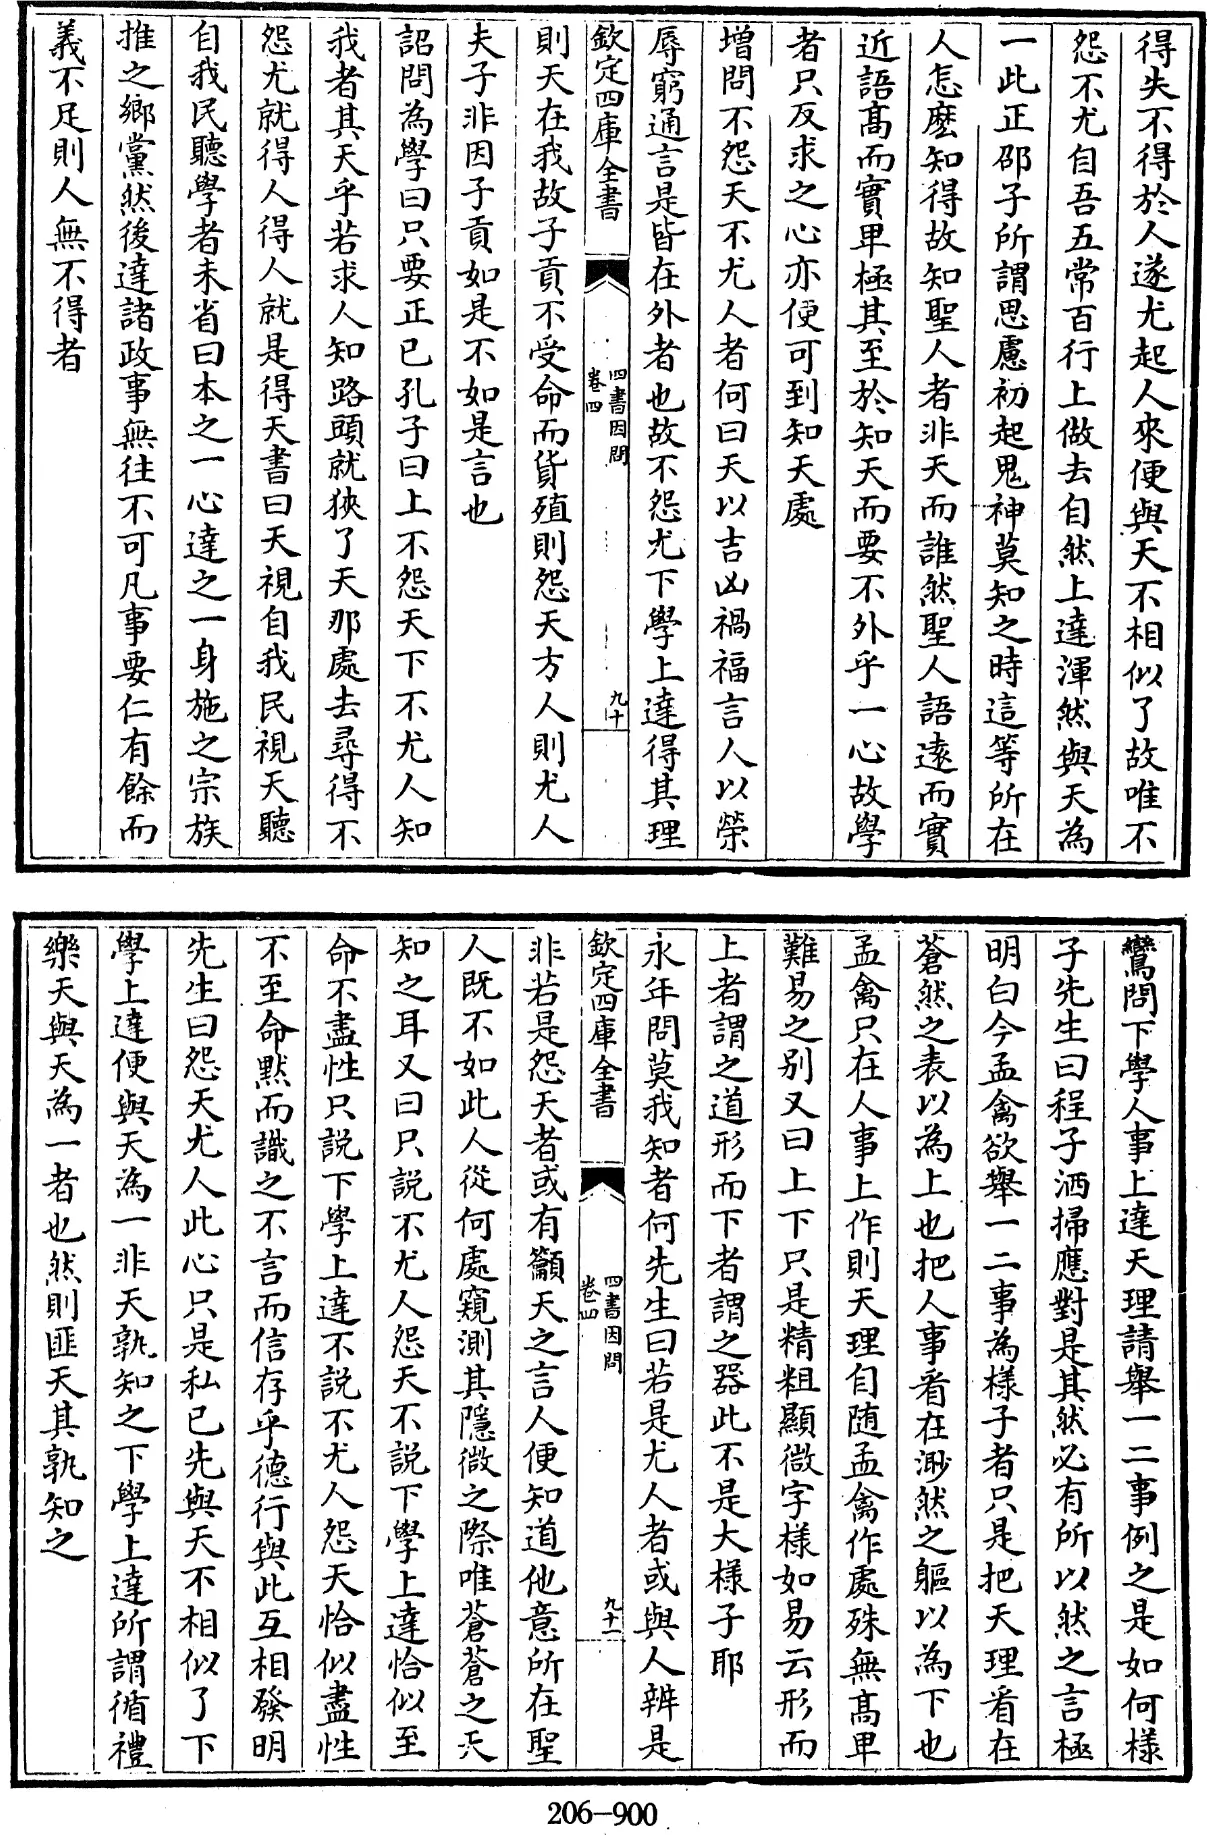 得失不得於人遂尤起人來便與天不相似了故唯不
怨不尤自吾五常百行上做去自然上達渾然與天為
一此正邵子所謂思慮初起鬼神莫知之時這等所在
人怎麽知得故知聖人者非天而誰然聖人語逺而實
近語髙而實卑極其至於知天而要不外乎一心故學
者只反求之心亦便可到知天處
増問不怨天不尤人者何曰天以吉凶禍福言人以榮
辱窮通言是皆在外者也故不怨尤下學上達得其理
欽定四庫全書
四書因問
卷四
九十
則天在我故子貢不受命而貨殖則怨天方人則尤人
夫子非因子貢如是不如是言也
詔問為學曰只要正已孔子曰上不怨天下不尤人知
我者其天乎若求人知路頭就狹了天那處去尋得不
怨尤就得人得人就是得天書曰天視自我民視天聽
自我民聽學者未省曰本之一心達之一身施之宗族
推之鄉黨然後達諸政事無往不可凡事要仁有餘而
義不足則人無不得者
鸞問下學人事上達天理請舉一二事例之是如何樣
子先生曰程子洒掃應對是其然必有所以然之言極
明白今孟禽欲舉一二事為樣子者只是把天理看在
蒼然之表以為上也把人事看在渺然之軀以為下也
孟禽只在人事上作則天理自随孟禽作處殊無髙卑
難易之别又曰上下只是精粗顯微字様如易云形而
上者謂之道形而下者謂之器此不是大樣子耶
永年問莫我知者何先生曰若是尤人者或與人辨是
欽定四庫全書
四書因問
卷四
九十一
非若是怨天者或有籲天之言人便知道他意所在聖
人既不如此人從何處窺測其隱微之際唯蒼蒼之天
知之耳又曰只説不尤人怨天不説下學上達恰似至
命不盡性只説下學上達不説不尤人怨天恰似盡性
不至命黙而識之不言而信存乎徳行與此互相發明
先生曰怨天尤人此心只是私已先與天不相似了下
學上達便與天為一非天孰知之下學上達所謂循禮
樂天與天為一者也然則匪天其孰知之
206-900